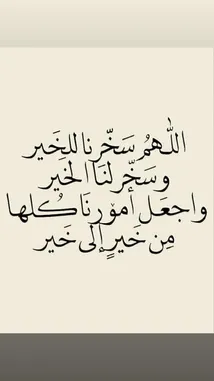 اللهمُ سَخّرنا للخَير
وسَخّر لنَا الخَير
واجعَل أمورنَا كُلها
مِن خَيرٍ إلى خَير